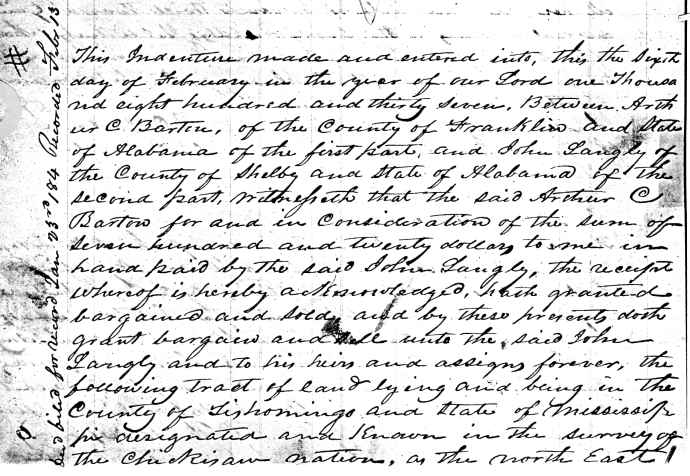 This Indenture made and entered into, this the Sixth
day of February in the year of our Lord one Thousa
nd eight hundred and thirty seven, Between Arth
ur C Barton, of the County of Franklin and State
of Alabama of the first part, and John Langly of
the County of Shelby and State of Alabama of the
second part, Witnesseth that the said Arthur C
Barton for and in Consideration of the sum of
Seven hundred and twenty dollars to me in
hand paid by the said John Langly, the receipt
whereof is hereby acknowledged, hath granted
bargained and sold, and by these presents doth
grant bargain and sell unto the said John
Langly and to his heirs and assigns forever, the
following tract of land lying and being in the
County of Tishomingo and State of Mississip
pi designated and Known in the survey of
the Chickisaw nation, as the north East 1
#
filed for record Jan 23rd 184 Recorded Feby 13